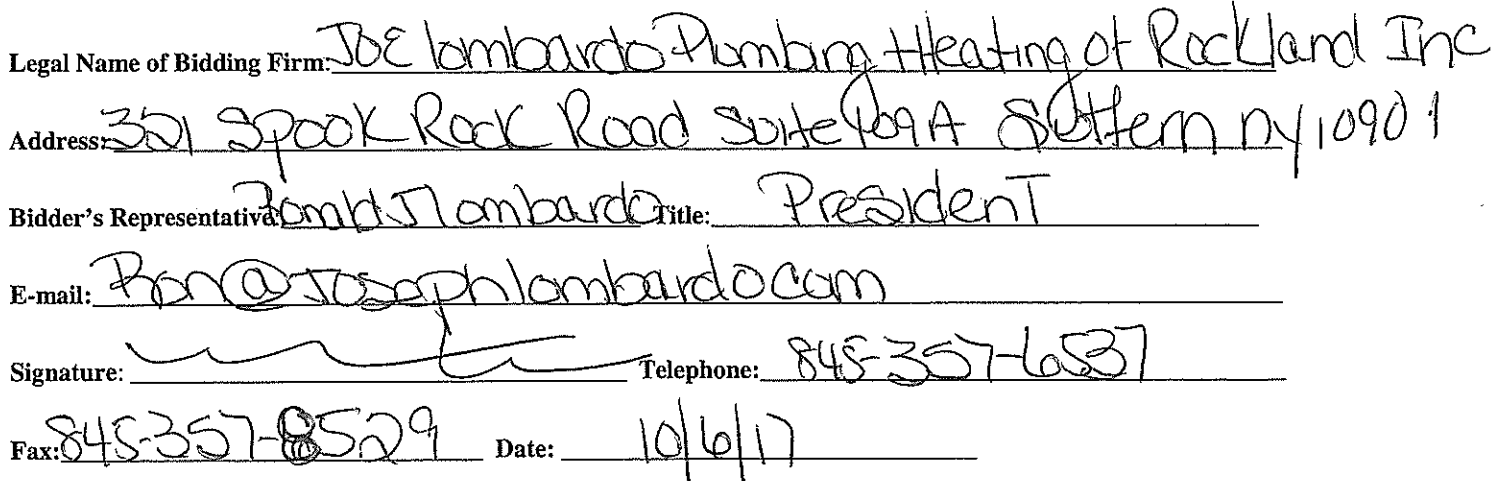 Legal Name of Bidding Firm: JOE lombardo Plumbing + Heating of Rockland Inc
Address: 321 Spook Rock Road Suite 109A Suffern ny 10901
Bidder's Representative: Ronald J Lombardo Title: President
E-mail: Ron@Josephlombardo.com
Signature: Telephone: 845-357-6537
Fax: 845-357-8529 Date: 10/6/17